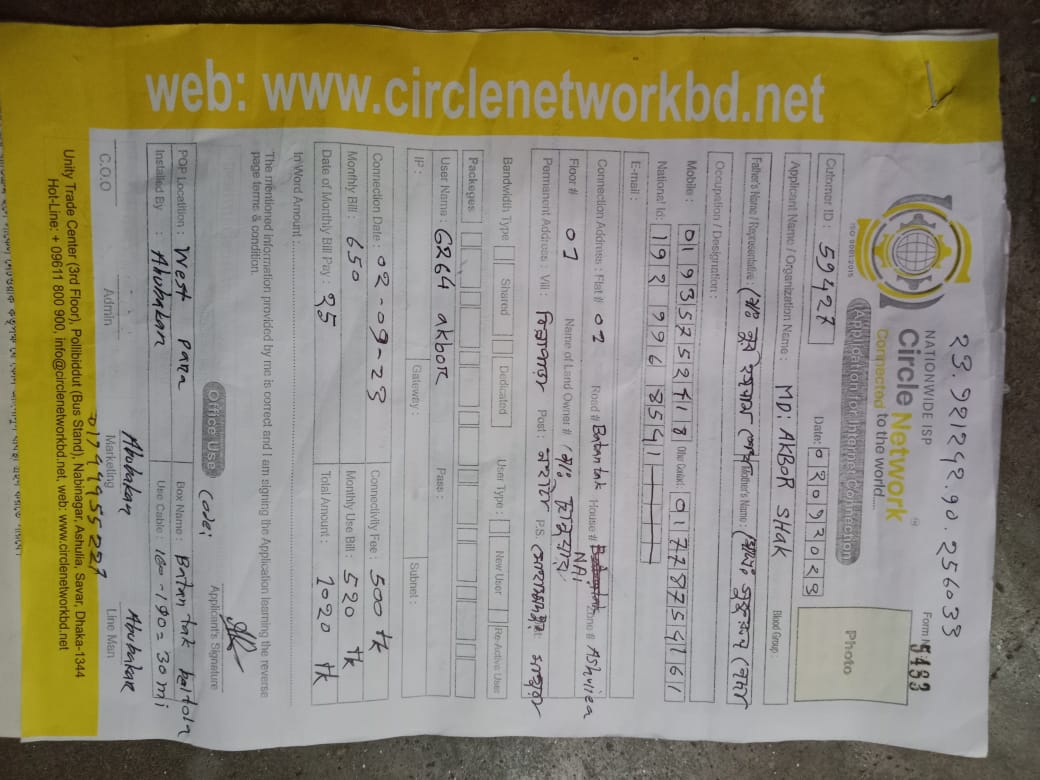 web: www.circlenetworkbd.net
23.92129.90.256033
NATIONWIDE ISP
Circle Network
Connected to the world...
ISO 9001:2015
Form #
5483
(Application for Internet Connection)
Customer ID : 59427
Date: 02092023
Photo
Applicant Name / Organization Name : MD: AKBOR SHAK
Blood Group :
Father's Name / Representative : মোঃ নুর Mother's Name : মোছাঃ
Occupation / Designation :
Mobile : 01935752718 Other Contact : 01778754761
National Id: 1929968541
E-mail :
Connection Address : Flat # 02 Road # Batan tak House # NAI Zone # Ashuliea
Floor # 01 Name of Land Owner # মোঃ
Permanent Address : Vill : Post : P.S. Dist:
Bandwidth Type Shared Dedicated User Type : New User Re-Active User
Packeges
User Name : G264 akbor Pass :
IP : Gateway : Subnet :
Connection Date : 02-09-23 Connectivity Fee : 500 tk
Monthly Bill : 650 Monthly Use Bill : 520 tk
Date of Monthly Bill Pay : 25 Total Amount : 1020 tk
In Word Amount :
The mentioned information provided by me is correct and I am signing the Application learning the reverse
page terms & condition.
Applicant's Signature
Office Use
POP Location : West para Box Name : Batan tak beltola
Installed By : Abubakar Use Cable : 160-190=30 mi
Abubakar Abubakar
C.O.O Admin Marketing Line Man
01744955227
Unity Trade Center (3rd Floor), Pollibiddut (Bus Stand), Nabinagar, Ashulia, Savar, Dhaka-1344
Hot-Line: + 09611 800 900, info@circlenetworkbd.net, web: www.circlenetworkbd.net